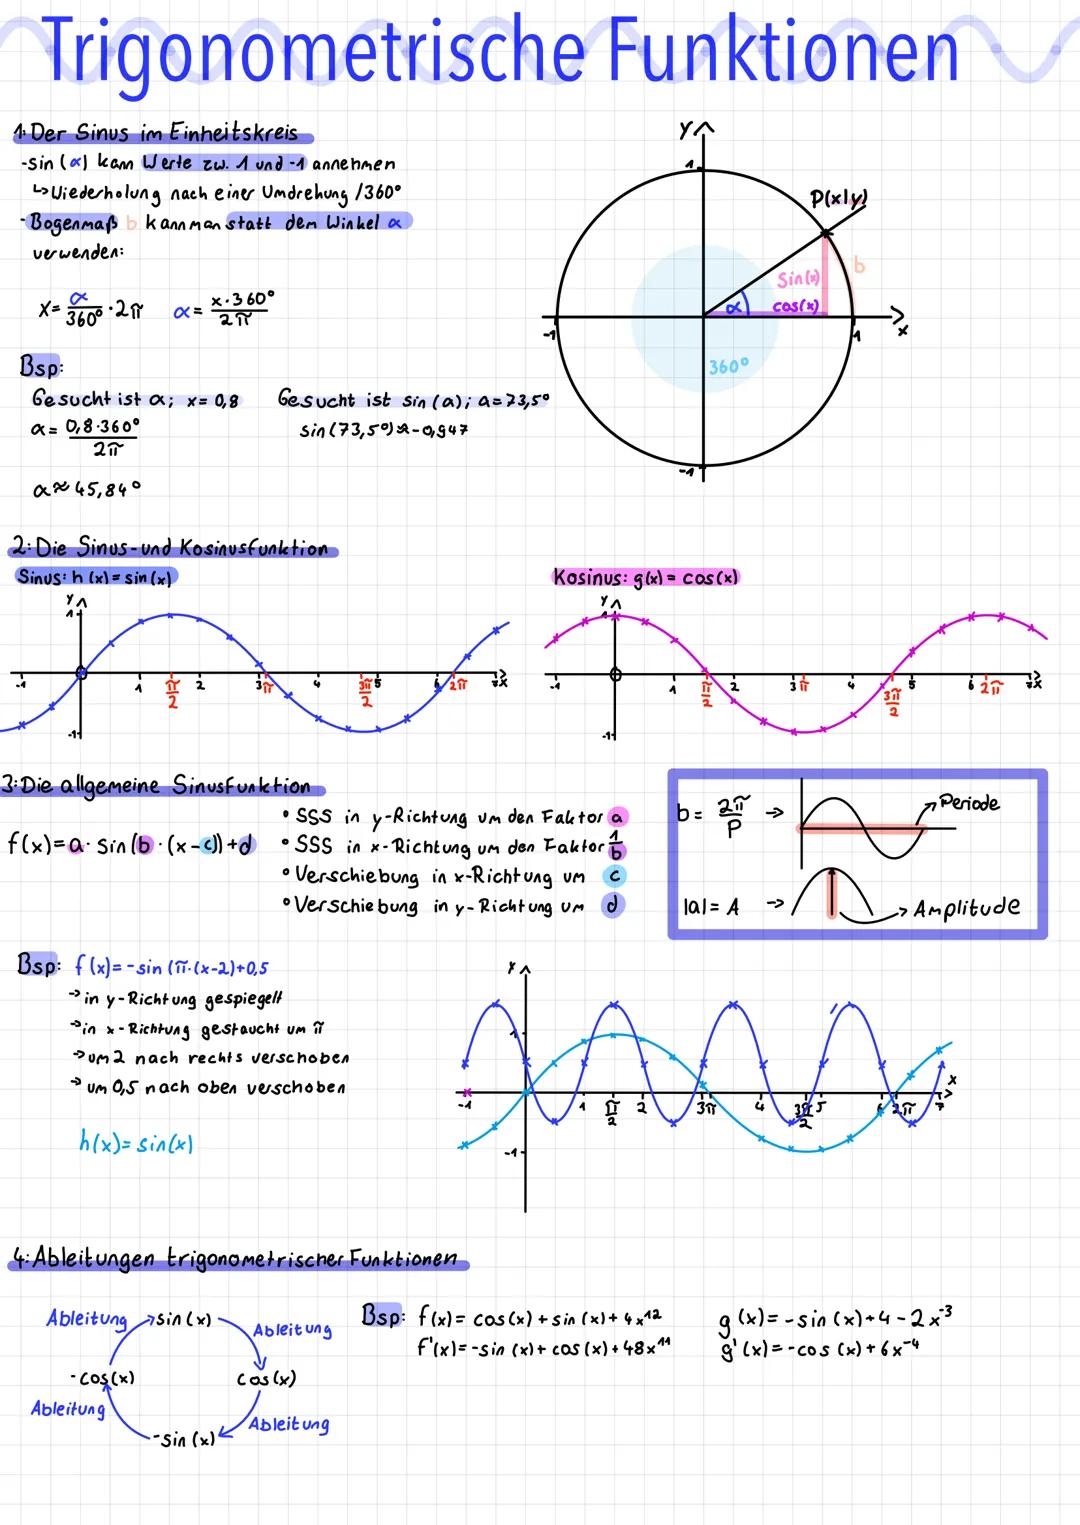 Trigonometrische Funktionen
1: Der Sinus im Einheitskreis
-sin (α) kann Werte zw. 1 und -1 annehmen
↳ Wiederholung nach einer Umdrehung /360°
- Bogenmaß b kann man statt dem Winkel α
verwenden:
x = α/360° · 2π   α = x·360°/2π
Bsp:
Gesucht ist α; x = 0,8
α = 0,8·360°/2π
α ≈ 45,84°
Gesucht ist sin (a); a = 73,5°
sin (73,5°) ≈ -0,947
y
1
P(x|y)
b
Sin(x)
α
cos(x)
-1
1
x
360°
-1
2: Die Sinus- und Kosinusfunktion
Sinus: h (x) = sin (x)
y
1
-1 1 π/2 2 3 π 4 3π/2 5 6 2π 7 x
-1
Kosinus: g(x) = cos(x)
y
1
-1 1 π/2 2 3 π 4 3π/2 5 6 2π 7 x
-1
3: Die allgemeine Sinusfunktion
f(x) = a · sin (b · (x - c)) + d
• SSS in y-Richtung um den Faktor a
• SSS in x-Richtung um den Faktor 1/b
• Verschiebung in x-Richtung um c
• Verschiebung in y-Richtung um d
b = 2π/P → Periode
|a| = A → Amplitude
Bsp: f(x) = -sin (π·(x-2)+0,5
→ in y-Richtung gespiegelt
→ in x-Richtung gestaucht um π
→ um 2 nach rechts verschoben
→ um 0,5 nach oben verschoben
h(x) = sin(x)
y
1
-1 1 π/2 2 3 π 4 3π/2 5 6 2π 7 x
-1
4: Ableitungen trigonometrischer Funktionen
Ableitung sin (x) Ableitung
-cos(x) cos (x)
Ableitung -sin (x) Ableitung
Bsp: f(x) = cos(x) + sin (x) + 4x¹²
f'(x) = -sin (x) + cos (x) + 48x¹¹
g (x) = -sin (x) + 4 - 2x⁻³
g' (x) = -cos (x) + 6x⁻⁴